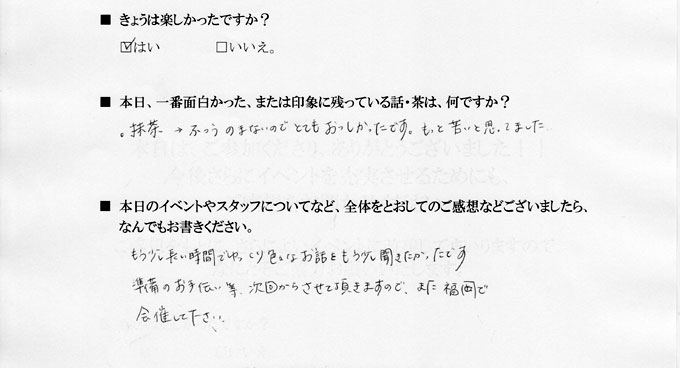 ■ きょうは楽しかったですか？
☑はい □いいえ。
■ 本日、一番面白かった、または印象に残っている話・茶は、何ですか？
。抹茶 → ふつうのまないのでとてもおいしかったです。もっと苦いと思ってました
■ 本日のイベントやスタッフについてなど、全体をとおしてのご感想などございましたら、
なんでもお書きください。
もう少し長い時間でゆっくり色々なお話をもう少し聞きたかったです
準備のお手伝い等、次回からさせて頂きますので、また福岡で
会催して下さい。